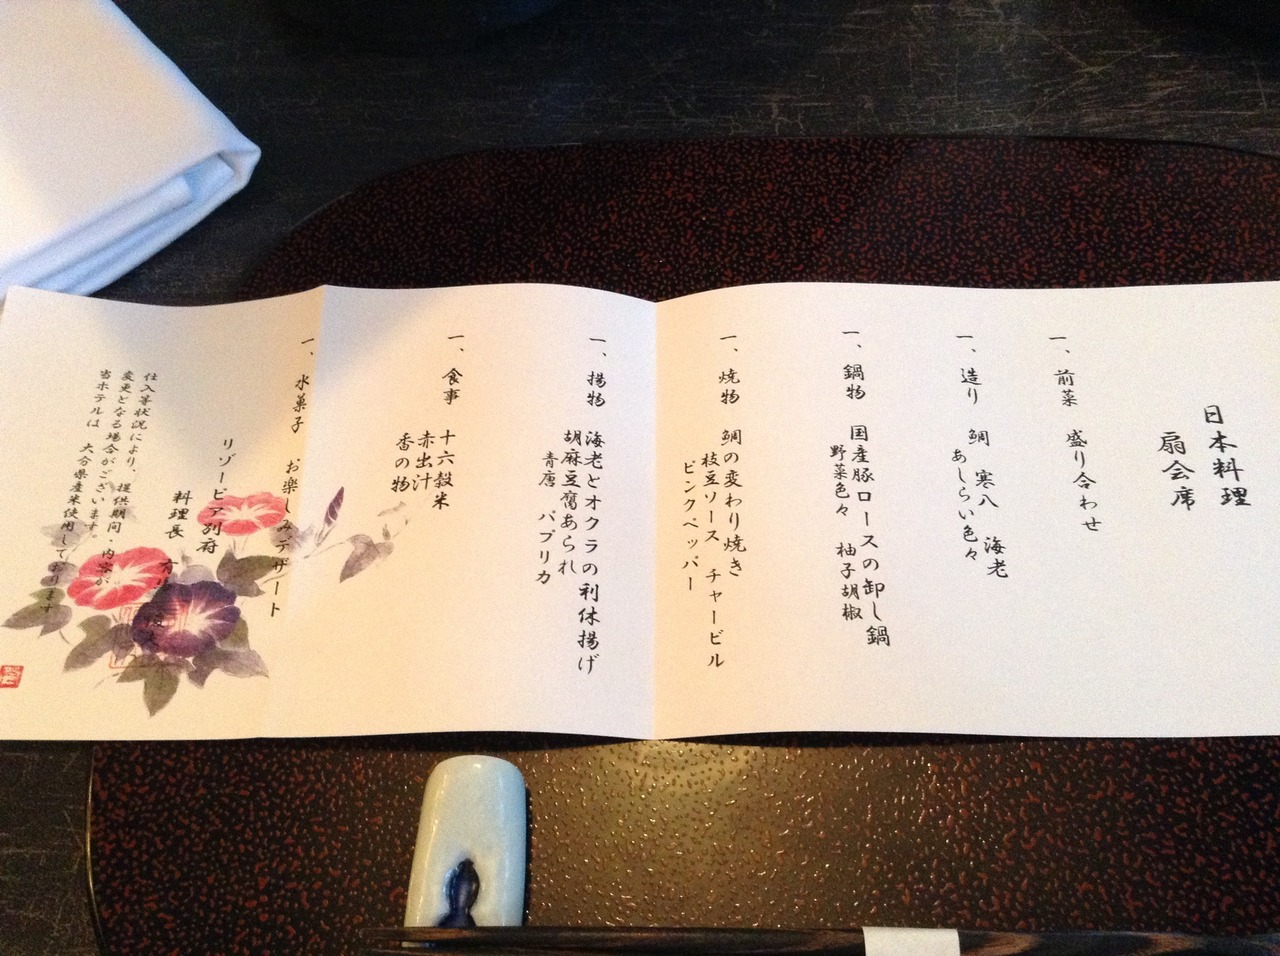 日本料理
扇会席
一、前菜 盛り合わせ
一、造り 鯛 寒八 海老
あしらい色々
一、鍋物 国産豚ロースの卸し鍋
野菜色々 柚子胡椒
一、焼物 鯛の変わり焼き
枝豆ソース チャービル
ピンクペッパー
一、揚物 海老とオクラの利休揚げ
胡麻豆腐あられ
青唐 パプリカ
一、食事 十六穀米
赤出汁
香の物
一、水菓子 お楽しみデザート
リゾーピア別府
料理長
仕入等状況により、提供期間・内容が
変更となる場合がございます。
当ホテルは 大分県産米使用しております